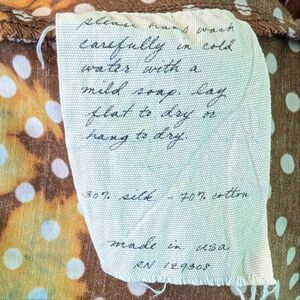 please hand wash
carefully in cold
water with a
mild soap. lay
flat to dry or
hang to dry.
30% silk - 70% cotton
made in usa
RN 129308